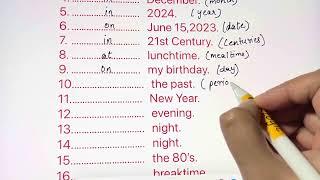 December. (month)
5. in 2024. (year)
6. on June 15,2023. (date)
7. in 21st Century. (centuries)
8. at lunchtime. (mealtime)
9. on my birthday. (day)
10. the past. (perio
11. New Year.
12. evening.
13. night.
14. night.
15. the 80's.
16. breaktime